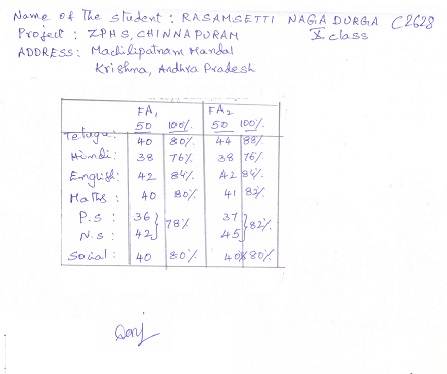 Name of The student : RASAMSETTI NAGA DURGA C2628
Project : ZPHS, CHINNAPURAM X class
ADDRESS : Machilipatnam Mandal
Krishna, Andhra Pradesh
FA1 FA2
50 100% 50 100%
Telugu : 40 80% 44 88%
Hindi : 38 76% 38 76%
English : 42 84% 42 84%
Maths : 40 80% 41 82%
P.S : 36 } 78% 37 } 82%
N.S : 42 45
Social : 40 80% 40 80%